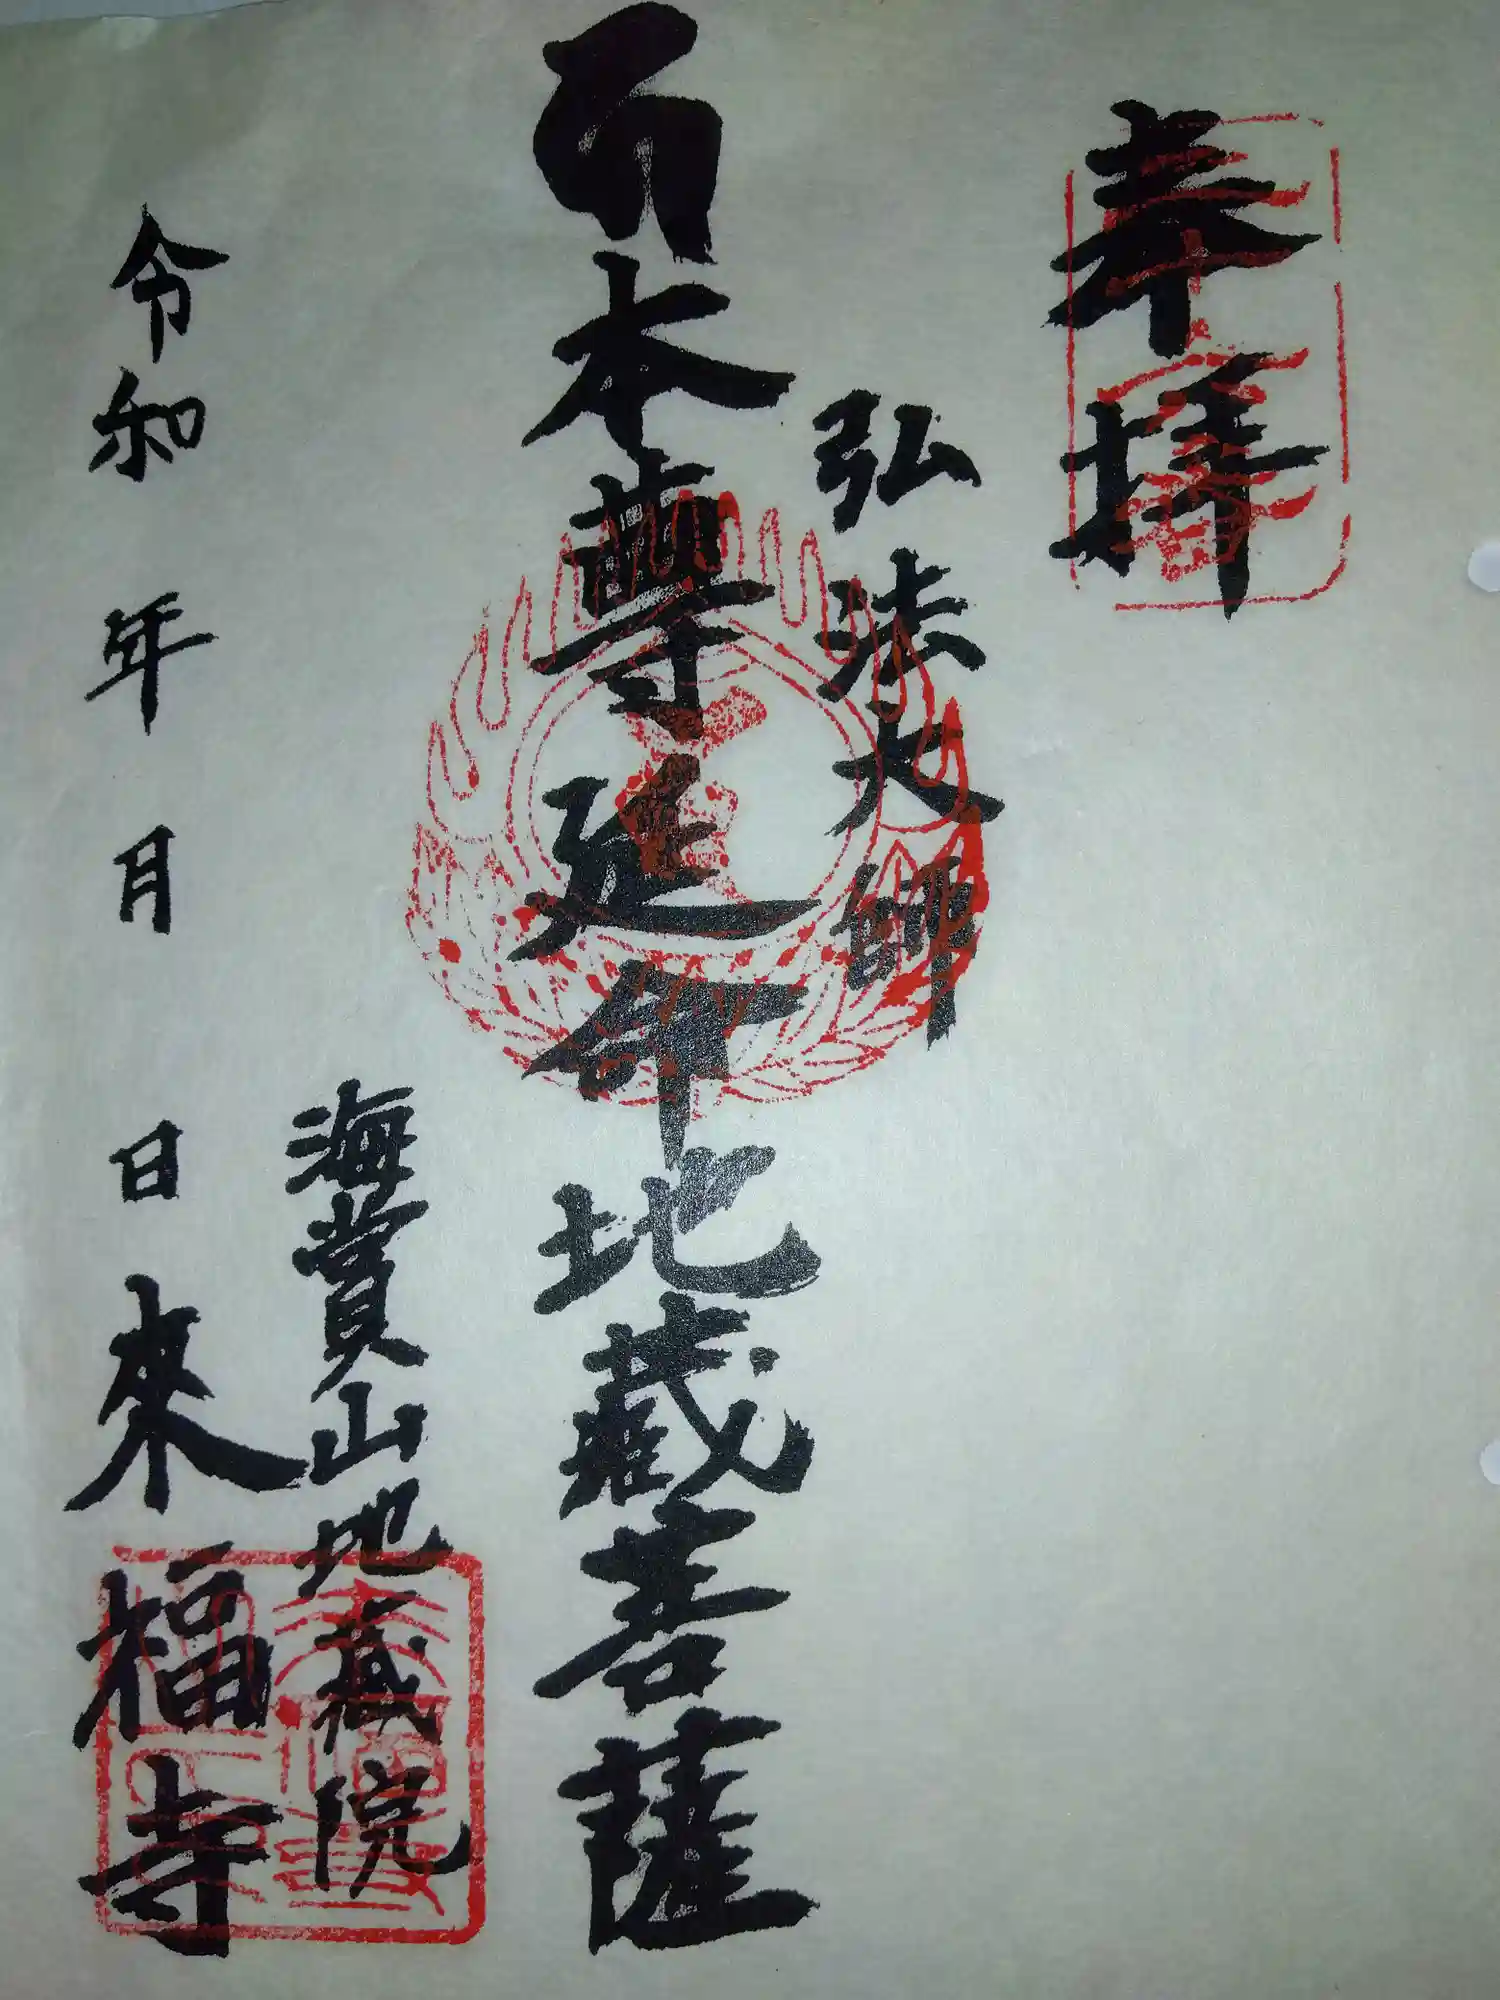 奉拝
弘法大師
本尊延命地蔵菩薩
海賞山地蔵院
令和 年 月 日
來福寺